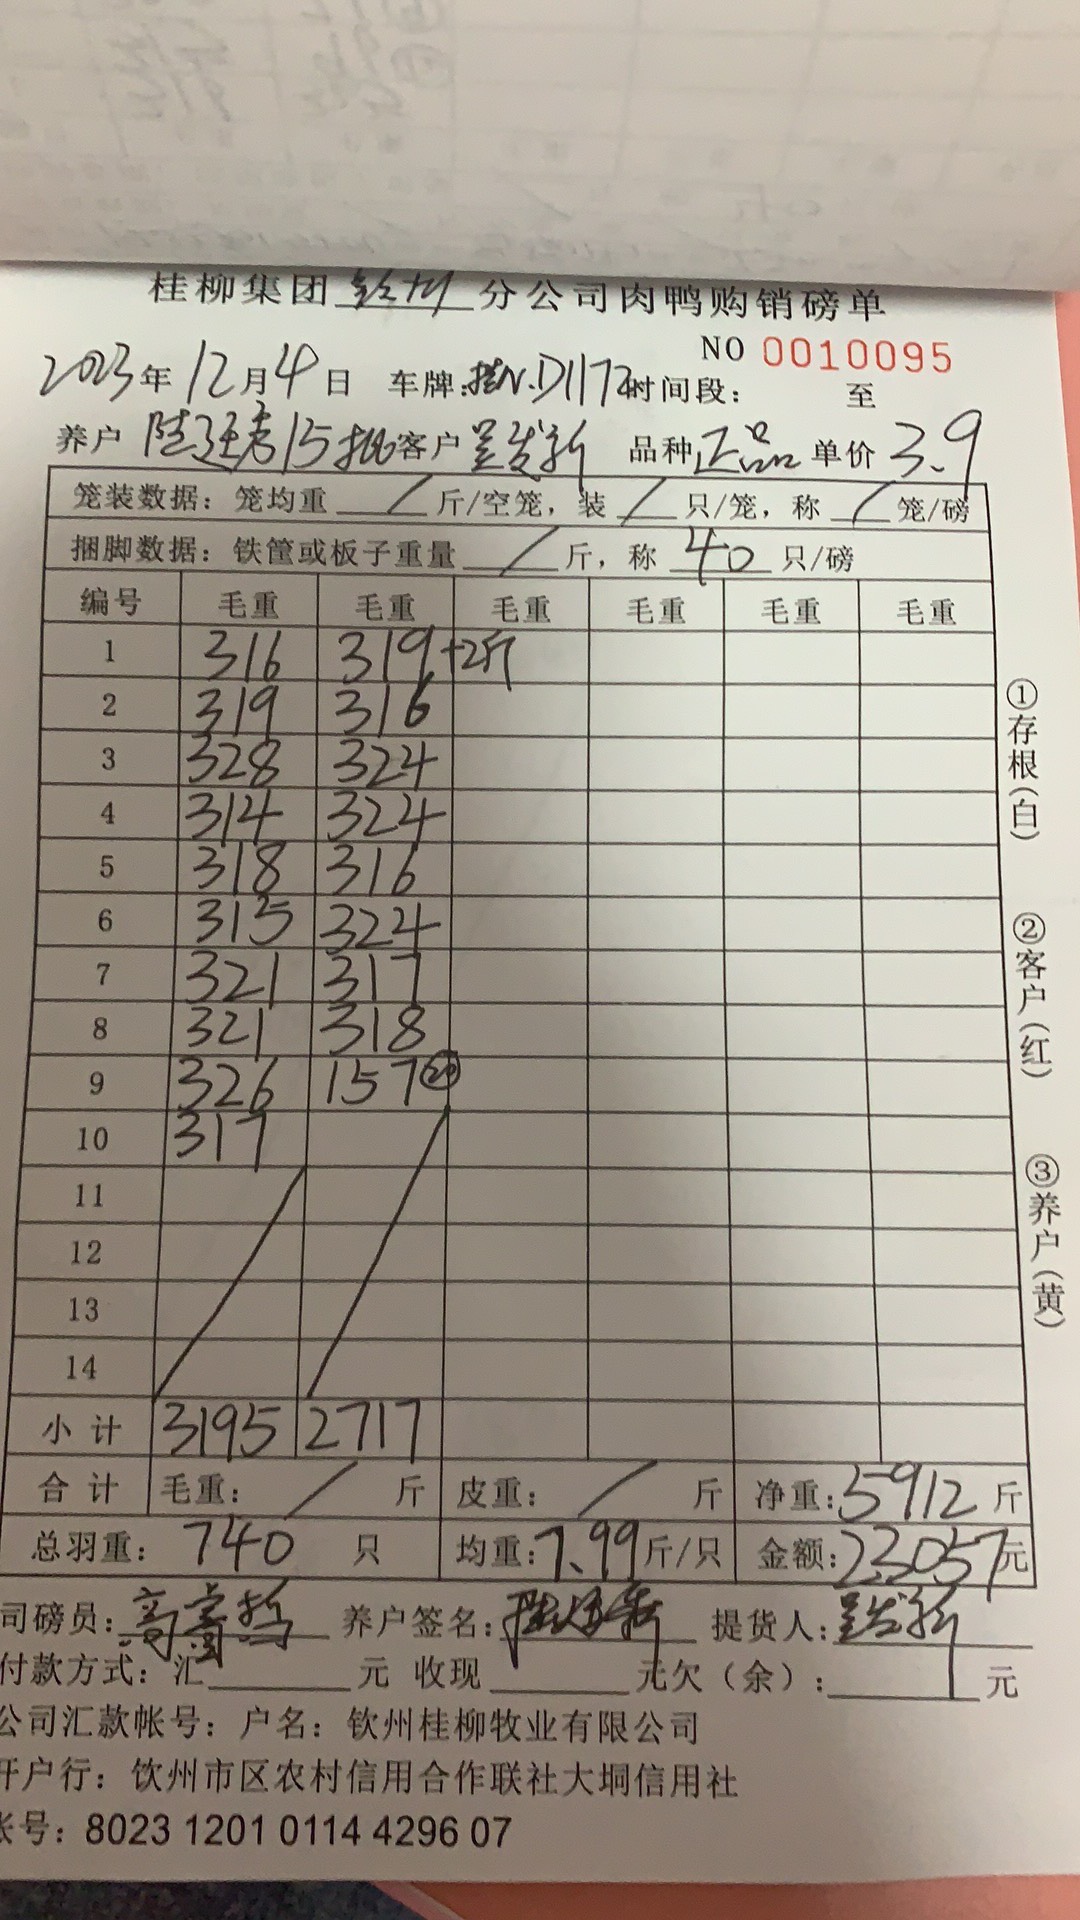 桂柳集团 钦州 分公司肉鸭购销磅单
NO 0010095
2023年12月4日 车牌:桂N.D1172 时间段: 至
养户 陆廷秀15批 客户 吴发新 品种 正品 单价 3.9
笼装数据：笼均重 / 斤/空笼，装 / 只/笼，称 / 笼/磅
捆脚数据：铁筐或板子重量 / 斤，称 40 只/磅
编号 毛重 毛重 毛重 毛重 毛重 毛重
1 316 319 +2斤
2 319 316
3 328 324
4 314 324
5 318 316
6 315 324
7 321 317
8 321 318
9 326 157 ⑳
10 317
11
12
13
14
小计 3195 2717
合计 毛重: / 斤 皮重: / 斤 净重:5912 斤
总羽重: 740 只 均重:7.99 斤/只 金额:23057元
司磅员: 养户签名: 提货人:吴发新
付款方式: 汇 元 收现 元 欠（余）: 元
公司汇款帐号: 户名: 钦州桂柳牧业有限公司
开户行: 饮州市区农村信用合作联社大垌信用社
帐号: 8023 1201 0114 4296 07
①存根（白）
②客户（红）
③养户（黄）